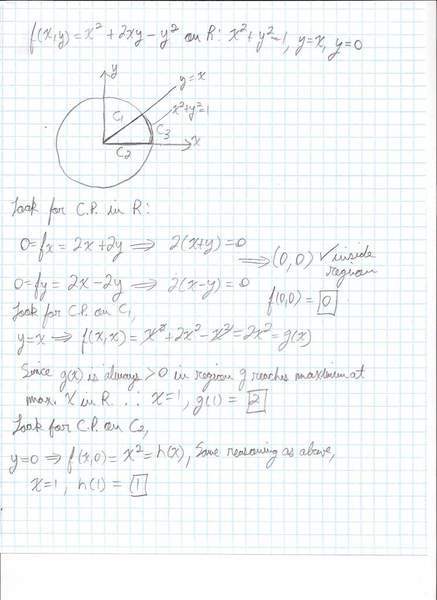 f(x,y) = x² + 2xy - y² on R: x² + y² = 1, y = x, y = 0
y
y = x
x² + y² = 1
C₁
C₃
x
C₂
Look for C.P. in R:
0 = fx = 2x + 2y ⟹ 2(x+y) = 0
⟹ (0,0) ✓ inside region
0 = fy = 2x - 2y ⟹ 2(x-y) = 0
f(0,0) = 0
Look for C.P. on C₁,
y = x ⟹ f(x,x) = x² + 2x² - x² = 2x² = g(x)
Since g(x) is always > 0 in region g reaches maximum at
max. X in R ∴ x = 1, g(1) = 2
Look for C.P. on C₂,
y = 0 ⟹ f(x,0) = x² = h(x), Same reasoning as above,
x = 1, h(1) = 1